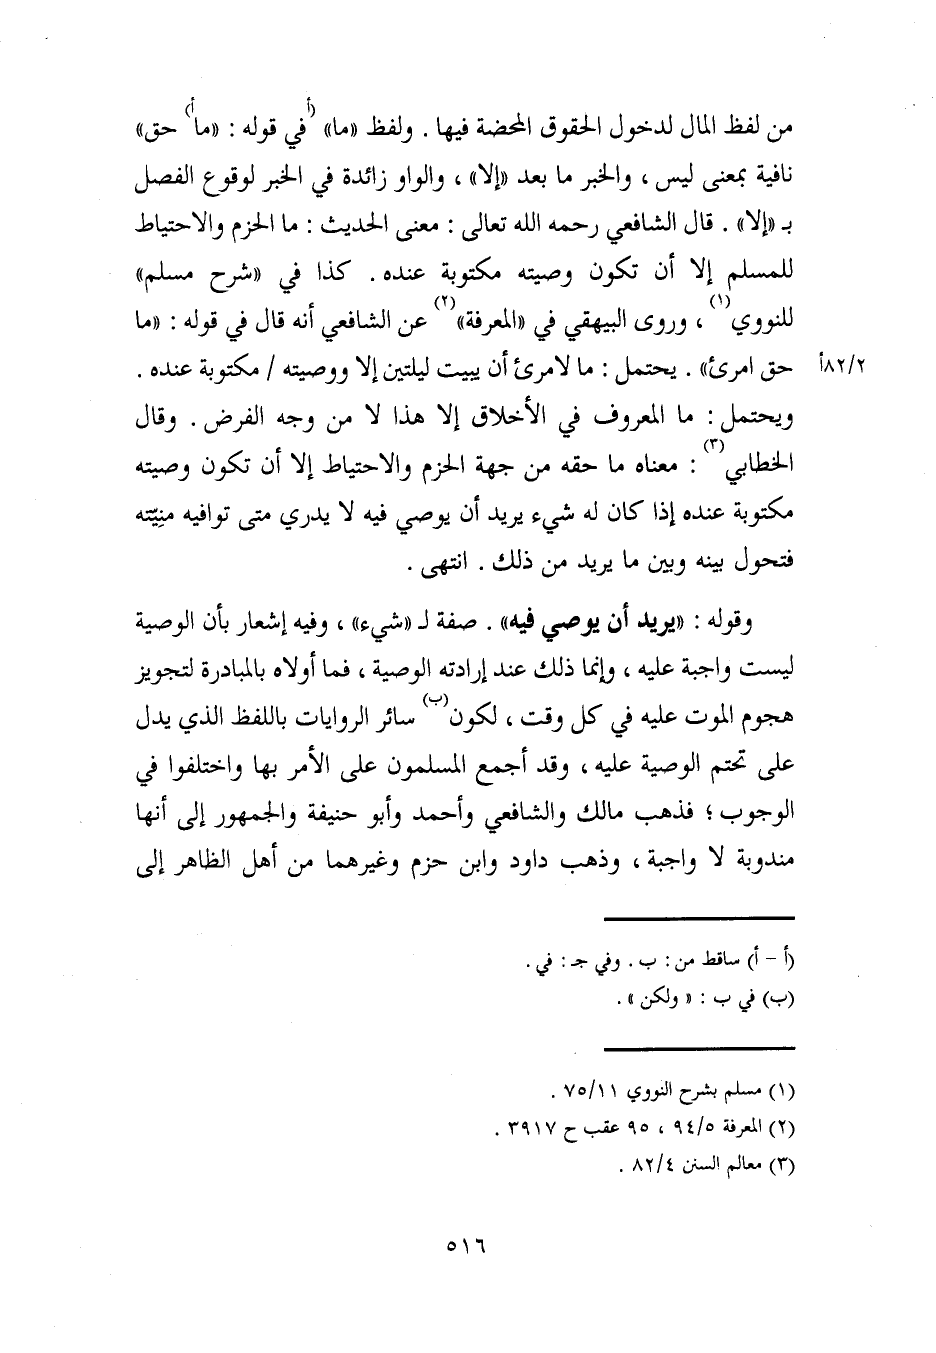 من لفظ المال لدخول الحقوق المحضة فيها . ولفظ «ما» (أ في قوله : «ما أ) حق»
نافية بمعنى ليس ، والخبر ما بعد «إلا» ، والواو زائدة في الخبر لوقوع الفصل
بـ «إلا» . قال الشافعي رحمه الله تعالى : معنى الحديث : ما الحزم والاحتياط
للمسلم إلا أن تكون وصيته مكتوبة عنده . كذا في «شرح مسلم»
للنووي(١) ، وروى البيهقي في «المعرفة»(٢) عن الشافعي أنه قال في قوله : «ما
حق امرئ» . يحتمل : ما لامرئ أن يبيت ليلتين إلا ووصيته / مكتوبة عنده . ٨٢/٢أ
ويحتمل : ما المعروف في الأخلاق إلا هذا لا من وجه الفرض . وقال
الخطابي(٣) : معناه ما حقه من جهة الحزم والاحتياط إلا أن تكون وصيته
مكتوبة عنده إذا كان له شيء يريد أن يوصي فيه لا يدري متى توافيه منيّته
فتحول بينه وبين ما يريد من ذلك . انتهى .
وقوله : «يريد أن يوصي فيه» . صفة لـ «شيء» ، وفيه إشعار بأن الوصية
ليست واجبة عليه ، وإنما ذلك عند إرادته الوصية ، فما أولاه بالمبادرة لتجويز
هجوم الموت عليه في كل وقت ، لكون(ب) سائر الروايات باللفظ الذي يدل
على تحتم الوصية عليه ، وقد أجمع المسلمون على الأمر بها واختلفوا في
الوجوب ؛ فذهب مالك والشافعي وأحمد وأبو حنيفة والجمهور إلى أنها
مندوبة لا واجبة ، وذهب داود وابن حزم وغيرهما من أهل الظاهر إلى
(أ - أ) ساقط من : ب . وفي جـ : في .
(ب) في ب : « ولكن » .
(١) مسلم بشرح النووي ٧٥/١١ .
(٢) المعرفة ٩٤/٥ ، ٩٥ عقب ح ٣٩١٧ .
(٣) معالم السنن ٨٢/٤ .
٥١٦